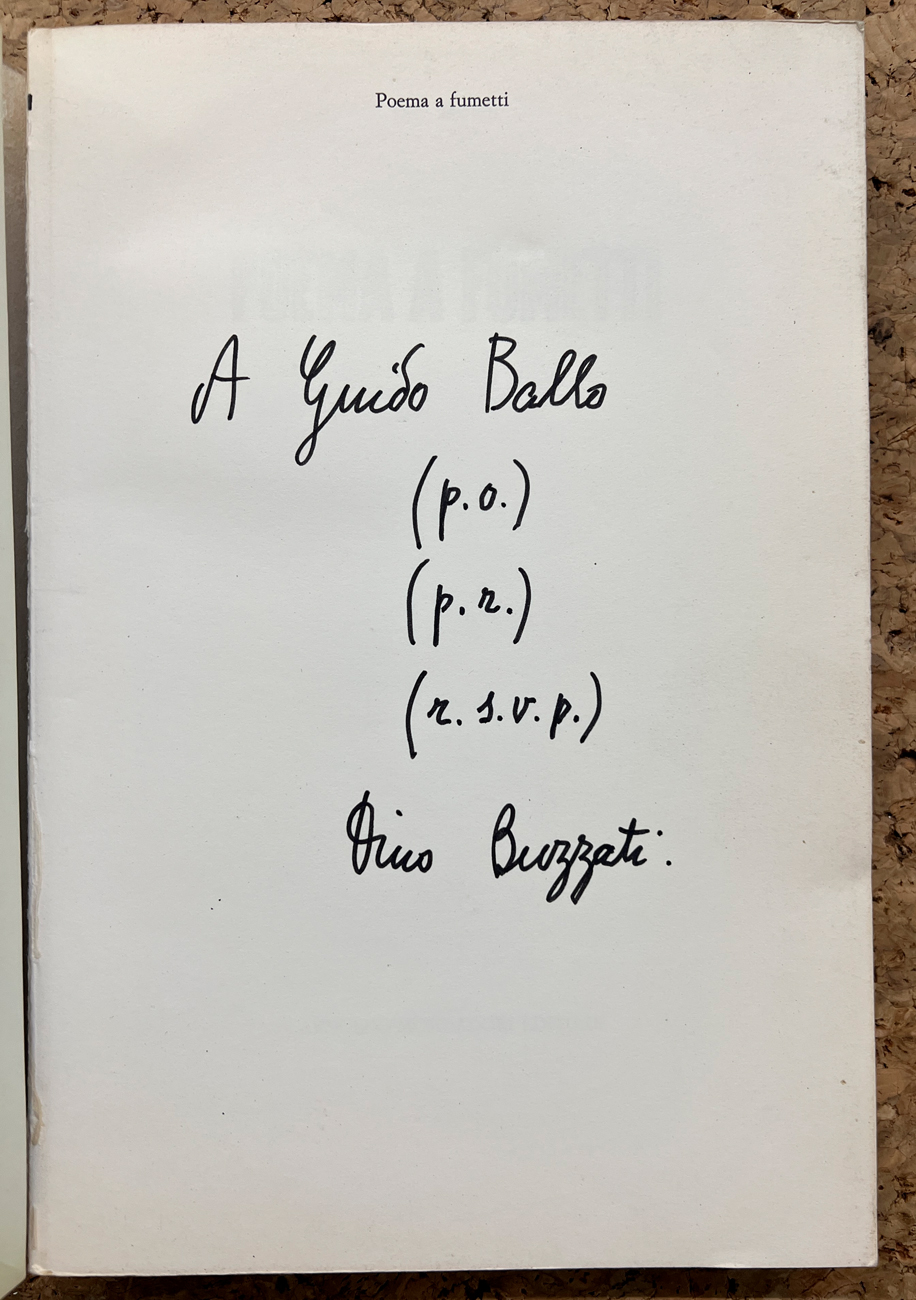 Poema a fumetti
A Guido Ballo
(p.o.)
(p.r.)
(r.s.v.p.)
Dino Buzzati.